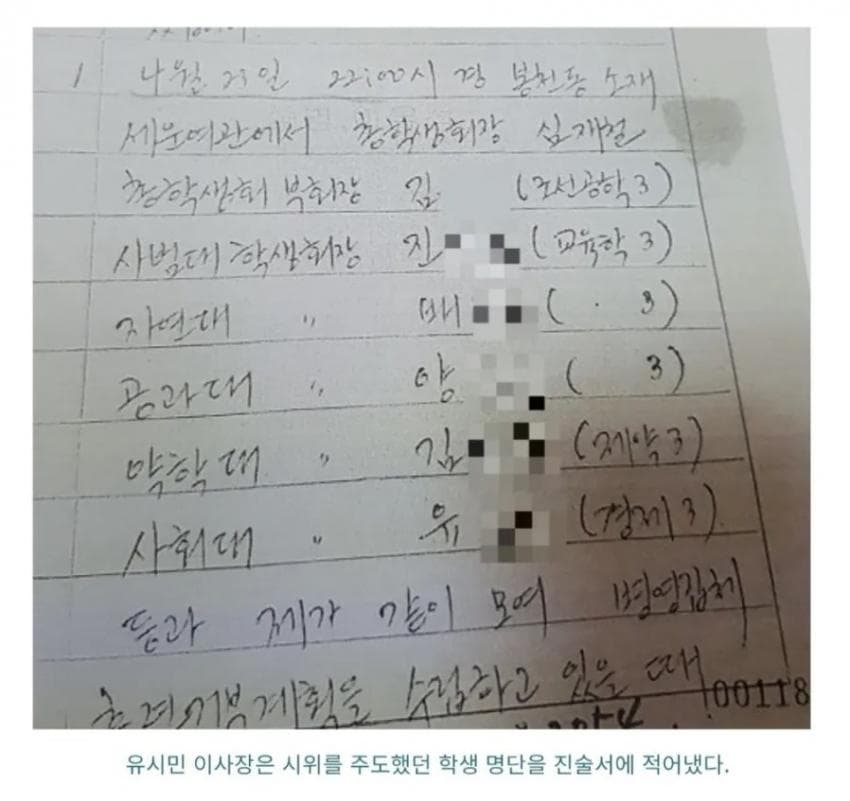 1 나월 23일 22:00시 경 봉천동 소재
세운여관에서 총학생회장 심재철
총학생회 부회장 김 (조선공학 3)
사범대 학생회장 진 (교육학 3)
자연대 〃 배 ( . 3)
공과대 〃 양 ( 3)
약학대 〃 김 (제약 3)
사회대 〃 유 (경제 3)
등과 제가 같이 모여 병영집체
훈련거부계획을 수립하고 있을 때
00118
유시민 이사장은 시위를 주도했던 학생 명단을 진술서에 적어냈다.